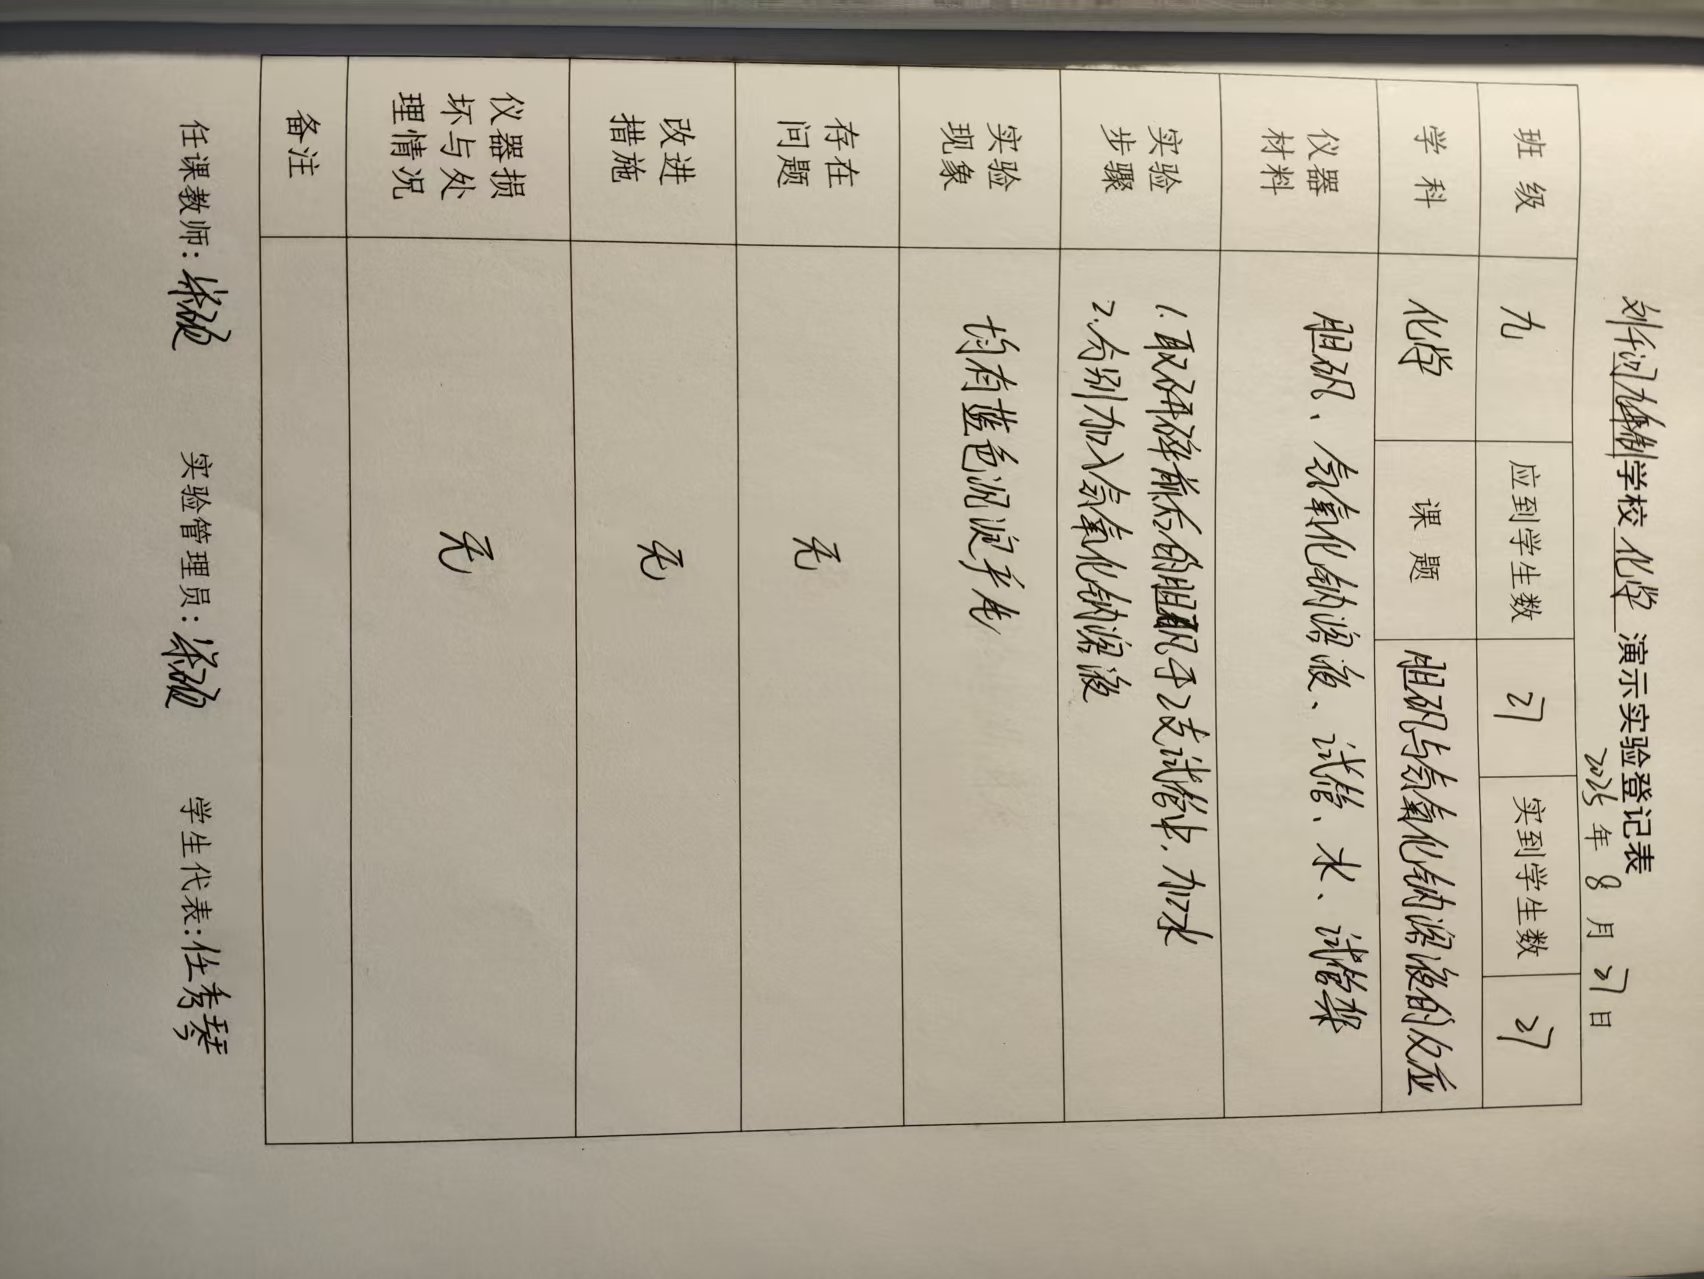 刘千河九年制学校 化学 演示实验登记表
2025年 8 月 27 日
班 级 九 应到学生数 27 实到学生数 27
学 科 化学 课 题 胆矾与氢氧化钠溶液的反应
仪器
材料
胆矾、氢氧化钠溶液、试管、水、试管架
实验
步骤
1.取研碎前后的胆矾于2支试管中,加水
2.分别加入氢氧化钠溶液
实验
现象
均有蓝色沉淀产生
存在
问题
无
改进
措施
无
仪器损
坏与处
理情况
无
备注
任课教师: 实验管理员: 学生代表:任秀琴